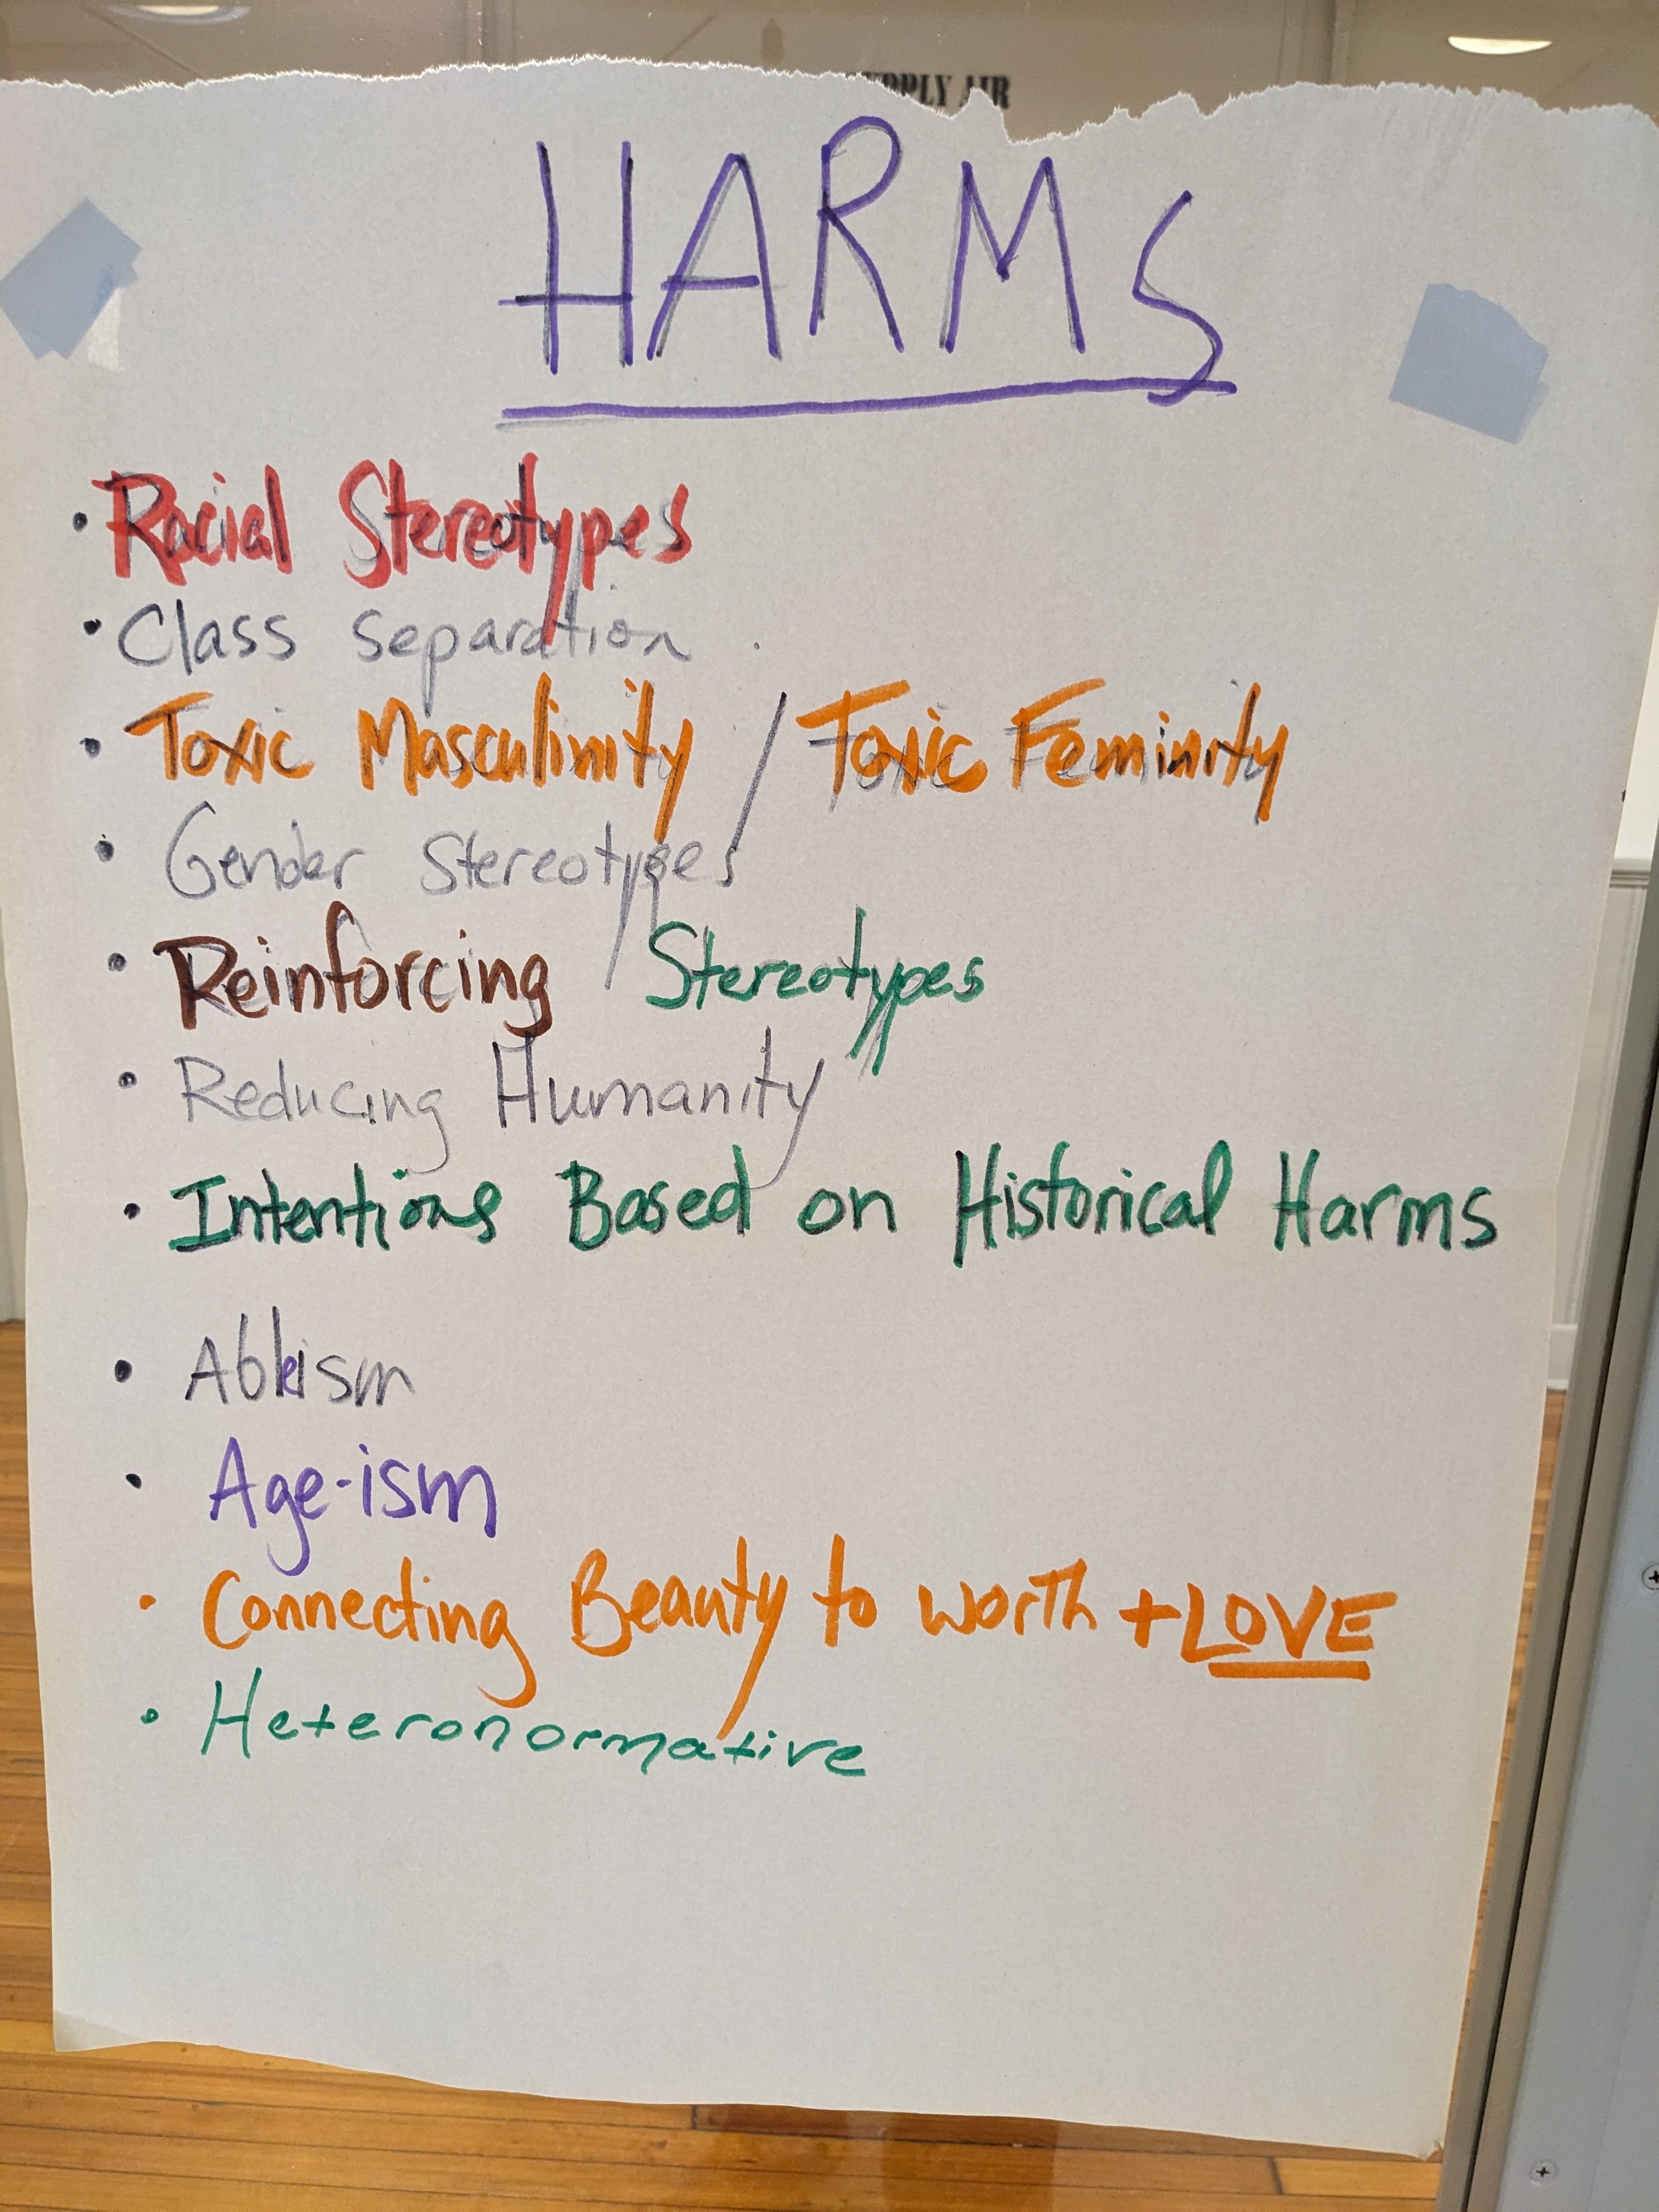 SUPPLY AIR
HARMS
• Racial Stereotypes
• Class separation
• Toxic Masculinity / Toxic Feminity
• Gender Stereotypes
• Reinforcing Stereotypes
• Reducing Humanity
• Intentions Based on Historical Harms
• Ableism
• Age-ism
• Connecting Beauty to worth + LOVE
• Heteronormative